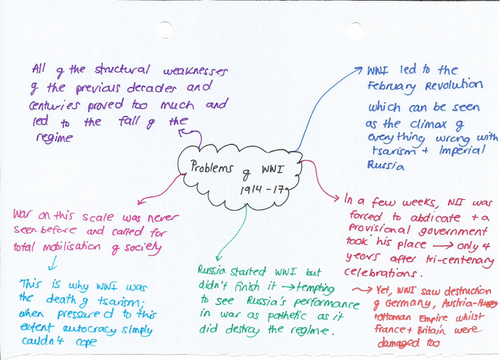 All of the structural weaknesses
of the previous decades and
centuries proved too much and
led to the fall of the
regime
WWI led to the
February Revolution
which can be seen
as the climax of
everything wrong with
tsarism + Imperial
Russia
Problems of WWI
1914-17
War on this scale was never
seen before and called for
total mobilisation of society
This is why WWI was
the death of tsarism;
when pressured to this
extent autocracy simply
couldn't cope
Russia started WWI but
didn't finish it → tempting
to see Russia's performance
in war as pathetic as it
did destroy the regime.
In a few weeks, NII was
forced to abdicate + a
provisional government
took his place → only 4
years after tri-centenary
celebrations.
→ Yet, WWI saw destruction
of Germany, Austria-Hungary
+ Ottoman Empire whilst
France + Britain were
damaged too